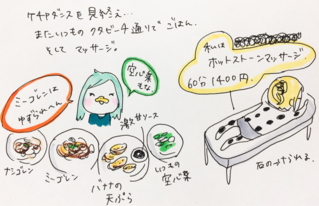 ケチャダンスを見終え…
またいつものクタビーチ通りでごはん。
そして マッサージ。
私は
ホットストーンマッサージ
60分1400円。
空心菜
もな
ミーゴレンは
ゆずれへん
激甘ソース
ナシゴレン
ミーゴレン
バナナの
天ぷら
いつもの
空心菜
石のせられる。